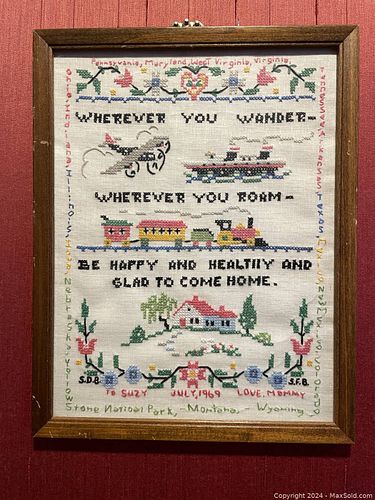 Pennsylvania, Maryland, West Virginia, Virginia,
WHEREVER YOU WANDER-
WHEREVER YOU ROAM-
BE HAPPY AND HEALTHY AND
GLAD TO COME HOME.
S.D.B. S.F.B.
TO SUZY JULY, 1969 LOVE, MOMMY
Stone National Park, - Montana, - Wyoming
Ohio, Indiana, Illinois, Iowa, Nebraska,
Tennessee, Arkansas, Texas,
Copyright 2024 - MaxSold.com